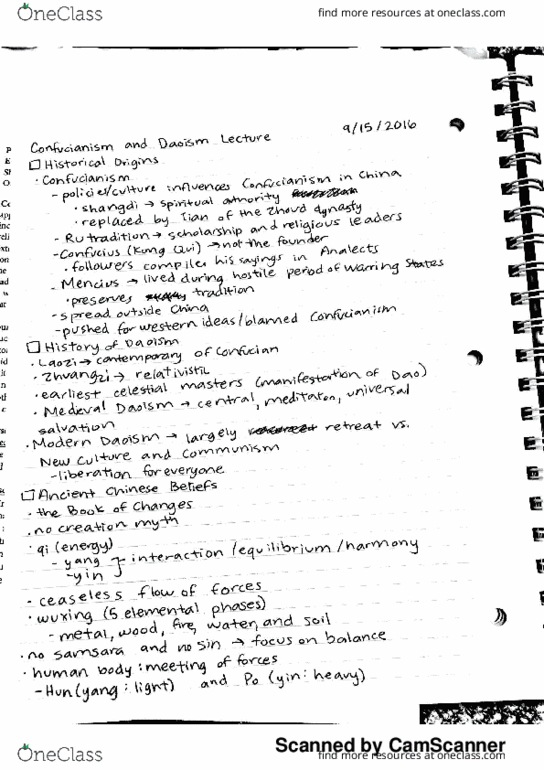 OneClass
find more resources at oneclass.com
9/15/2016
Confucianism and Daoism Lecture
Historical Origins
· Confucianism
- policies/culture influences Confucianism in China
· shangdi → spiritual athority
· replaced by Tian of the Zhou dynasty
- Ru tradition → scholarship and religious leaders
- Confucius (Kong Qui) → not the founder
· followers compiles his sayings in Analects
- Mencius → lived during hostile period of Warring States
· preserves tradition
- spread outside China
- pushed for western ideas/blamed Confucianism
History of Daoism
· Laozi → contemporary of Confucian
· Zhuangzi → relativistic
· earliest celestial masters (manifestation of Dao)
· Medieval Daoism → central, meditation, universal
salvation
· Modern Daoism → largely retreat vs.
New Culture and Communism
- liberation for everyone
Ancient Chinese Beliefs
· the Book of Changes
· no creation myth
· qi (energy)
- yang } interaction/equilibrium/harmony
- yin
- ceaseless flow of forces
· wuxing (5 elemental phases)
- metal, wood, fire, water, and soil
· no samsara and no sin → focus on balance
· human body: meeting of forces
- Hun (yang: light) and Po (yin: heavy)
Scanned by CamScanner
OneClass
find more resources at oneclass.com